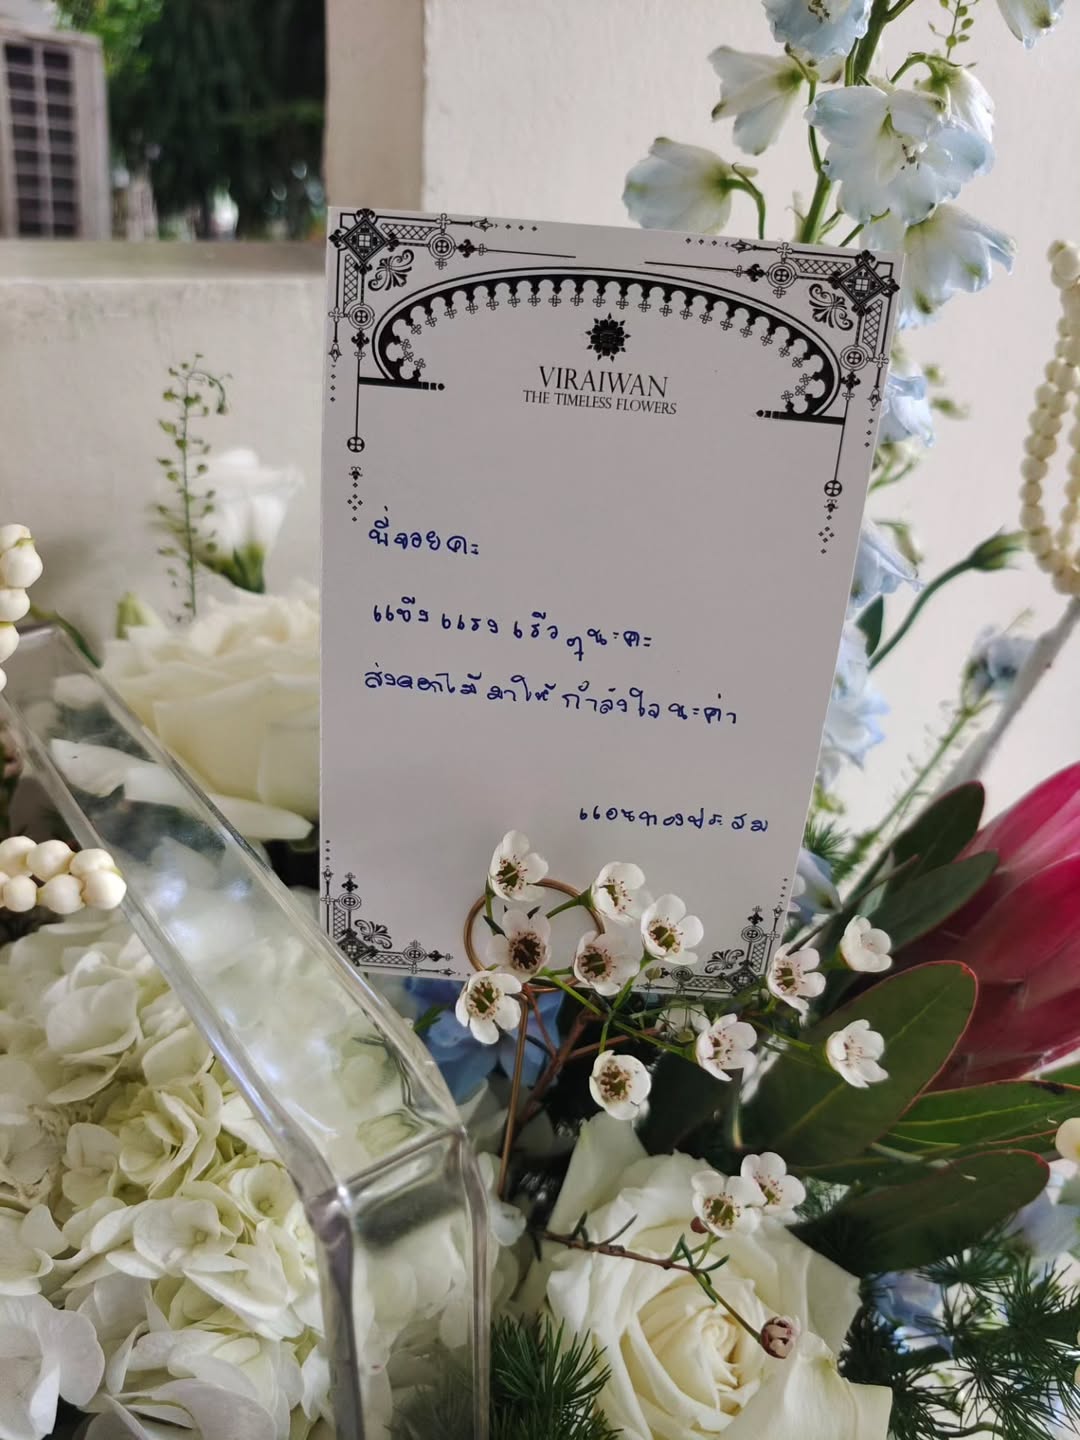 VIRAIWAN
THE TIMELESS FLOWERS
พี่จอยคะ
แข็งแรงเร็วๆนะคะ
ส่งดอกไม้มาให้กำลังใจนะค่า
แอนทองประสม